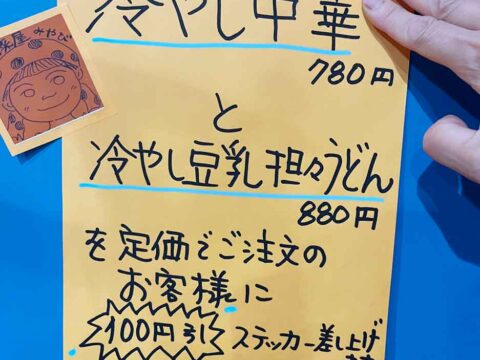 冷やし中華
780円
と
冷やし豆乳担々うどん
880円
を定価でご注文の
お客様に
100円引
ステッカー差し上げ
屋みやび